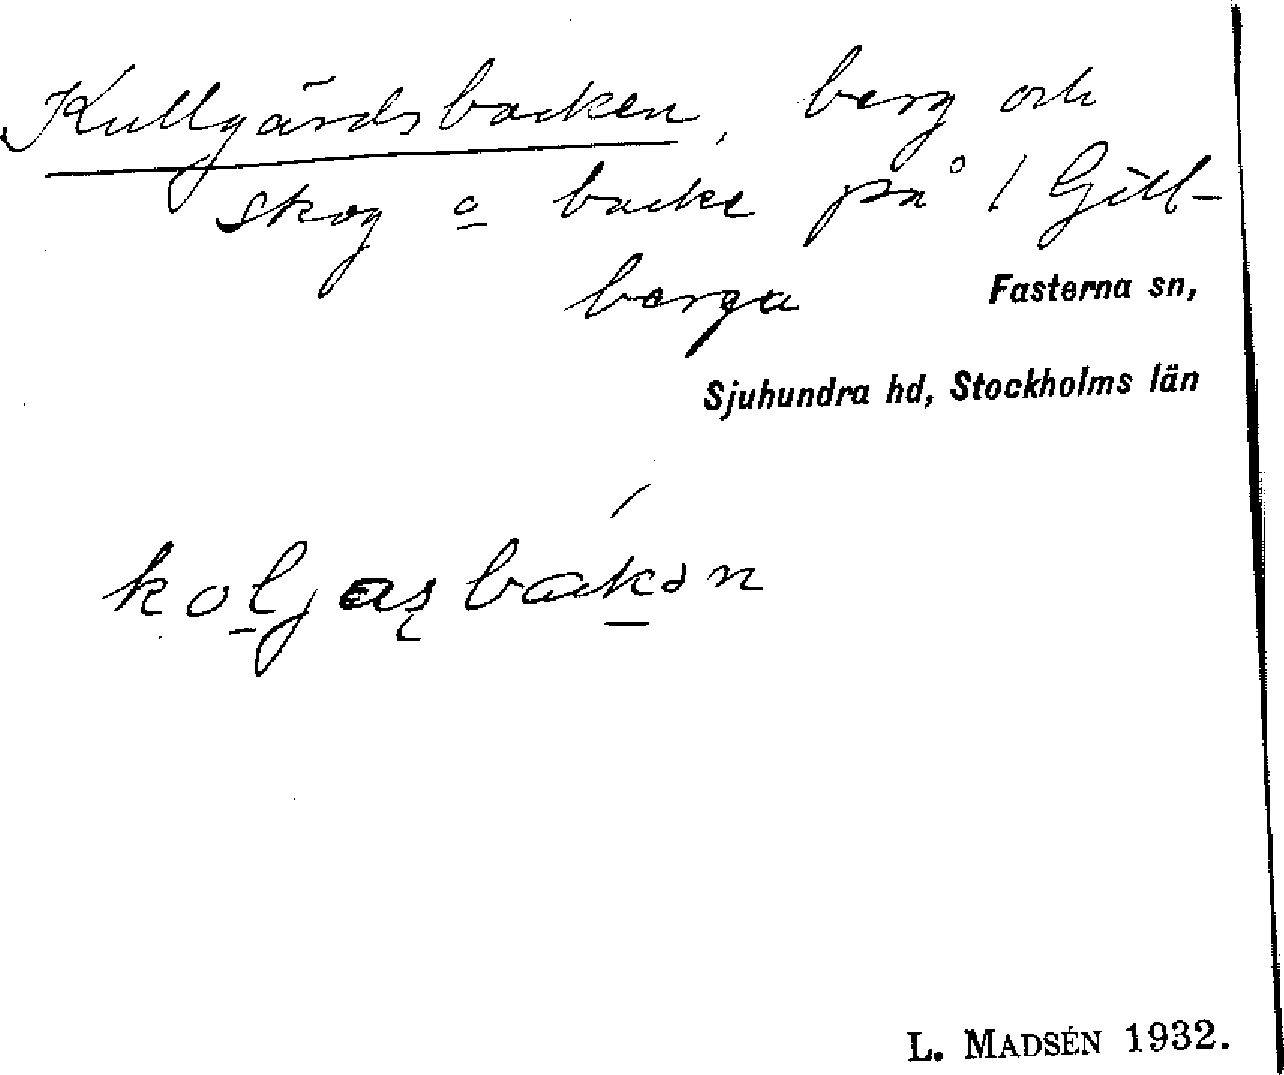 Kullgärdsbacken, berg och
skog o backe på 1 Gill-
berga
Fasterna sn,
Sjuhundra hd, Stockholms län
koljasbakən
L. MADSÉN 1932.